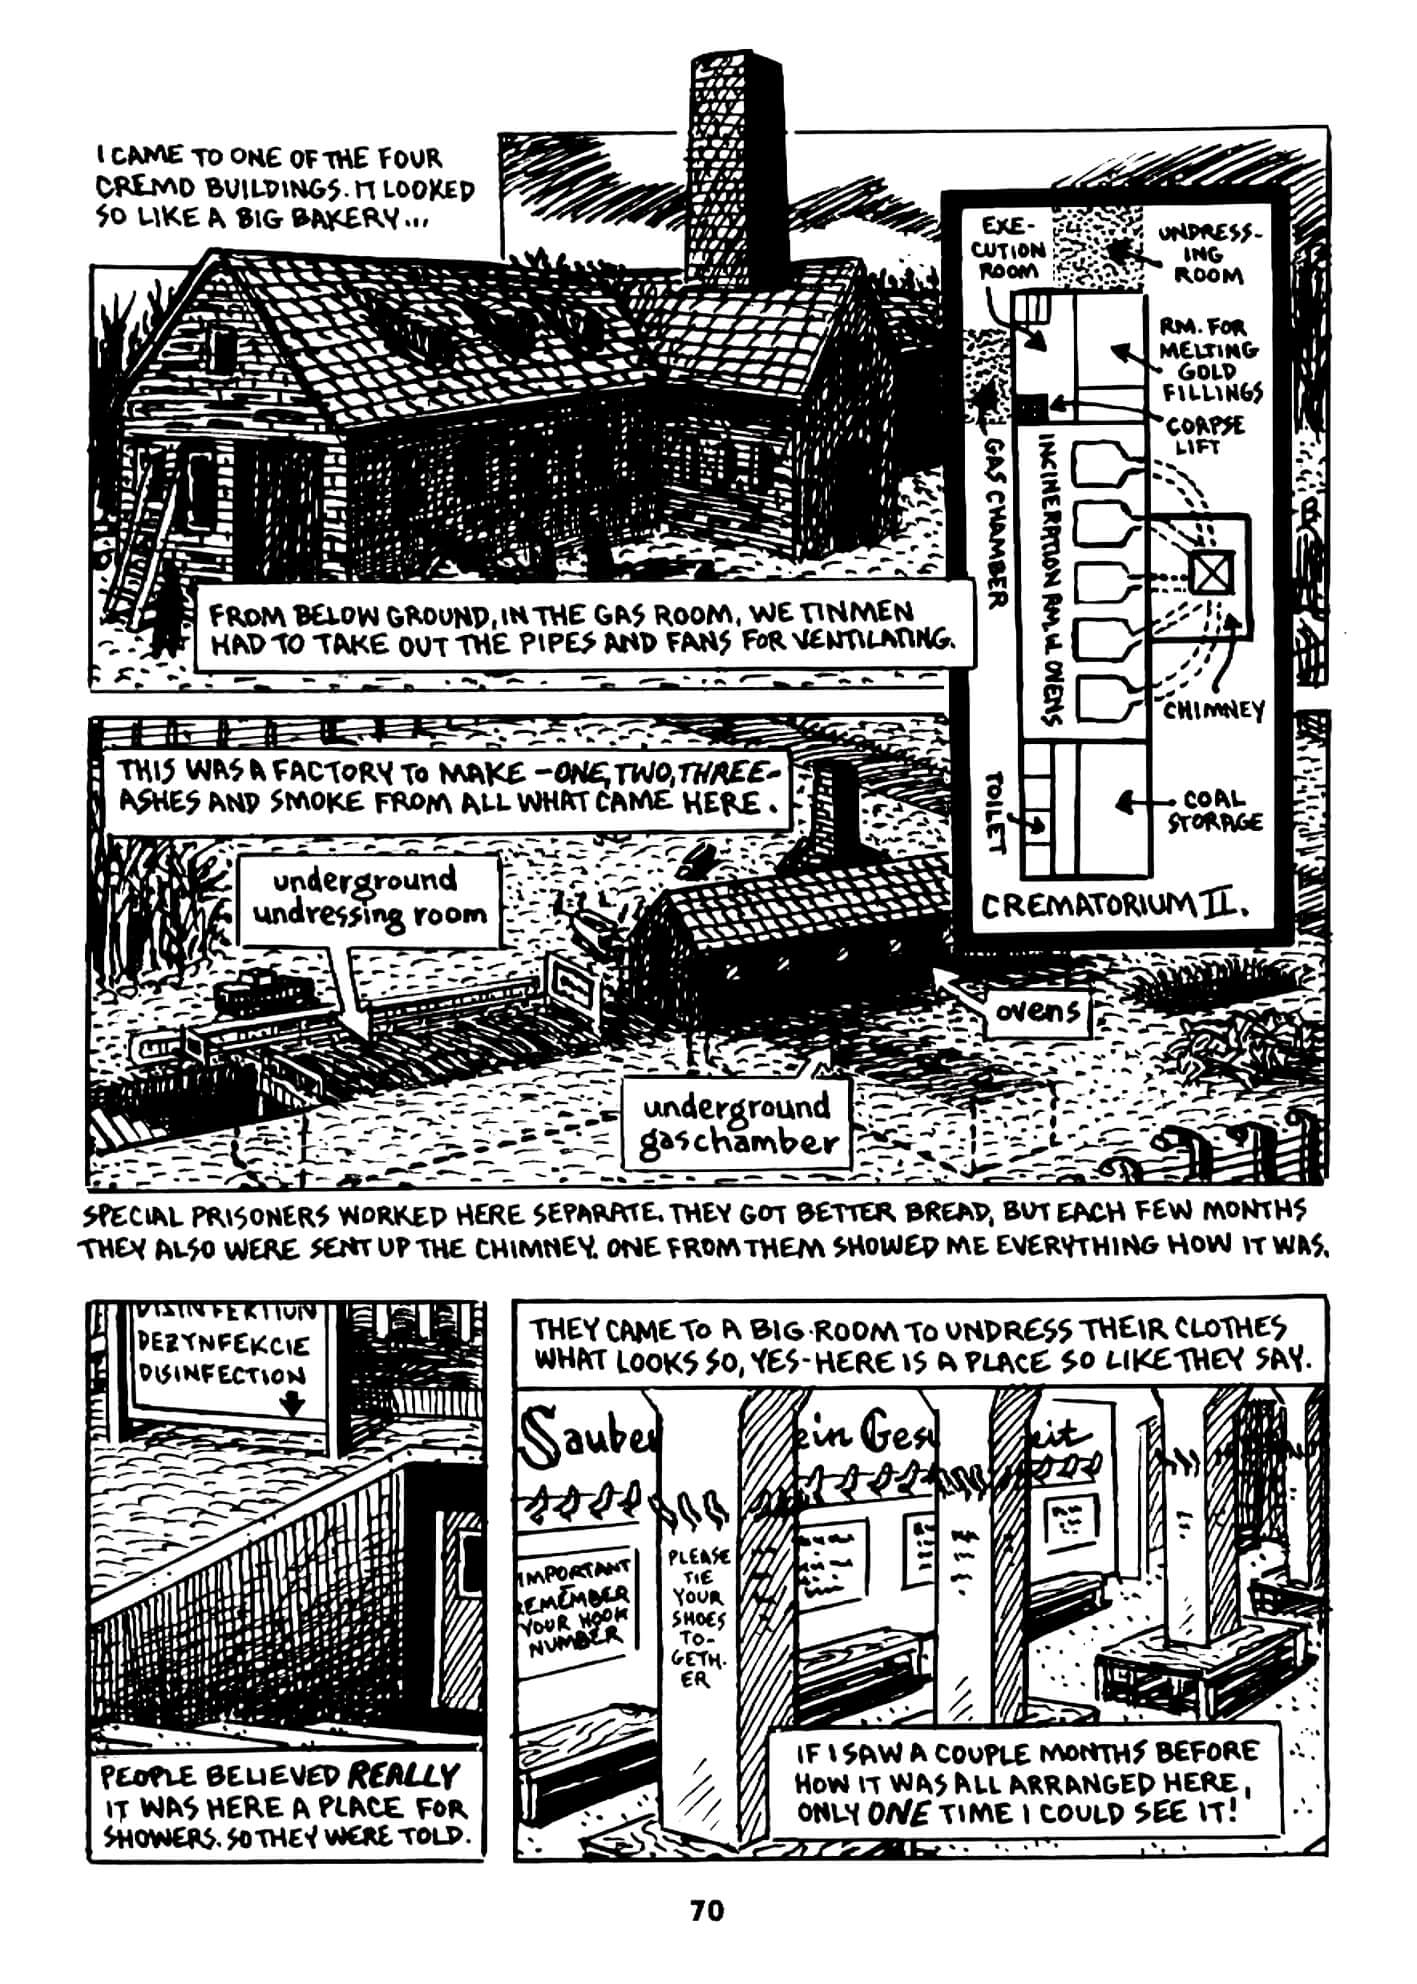 I CAME TO ONE OF THE FOUR
CREMO BUILDINGS. IT LOOKED
SO LIKE A BIG BAKERY...
EXE-
CUTION
ROOM
UNDRESS-
ING
ROOM
RM. FOR
MELTING
GOLD
FILLINGS
CORPSE
LIFT
GAS CHAMBER
INCINERATION RM. W. OVENS
CHIMNEY
TOILET
COAL
STORAGE
CREMATORIUM II.
FROM BELOW GROUND, IN THE GAS ROOM, WE TINMEN
HAD TO TAKE OUT THE PIPES AND FANS FOR VENTILATING.
THIS WAS A FACTORY TO MAKE -ONE, TWO, THREE-
ASHES AND SMOKE FROM ALL WHAT CAME HERE.
underground
undressing room
ovens
underground
gas chamber
SPECIAL PRISONERS WORKED HERE SEPARATE. THEY GOT BETTER BREAD, BUT EACH FEW MONTHS
THEY ALSO WERE SENT UP THE CHIMNEY. ONE FROM THEM SHOWED ME EVERYTHING HOW IT WAS.
DEZYNFEKCIE
DISINFECTION
PEOPLE BELIEVED REALLY
IT WAS HERE A PLACE FOR
SHOWERS. SO THEY WERE TOLD.
THEY CAME TO A BIG ROOM TO UNDRESS THEIR CLOTHES
WHAT LOOKS SO, YES-HERE IS A PLACE SO LIKE THEY SAY.
Saube ein Ges eit
IMPORTANT
REMEMBER
YOUR HOOK
NUMBER
PLEASE
TIE
YOUR
SHOES
TO-
GETH-
ER
IF I SAW A COUPLE MONTHS BEFORE
HOW IT WAS ALL ARRANGED HERE,
ONLY ONE TIME I COULD SEE IT!
70